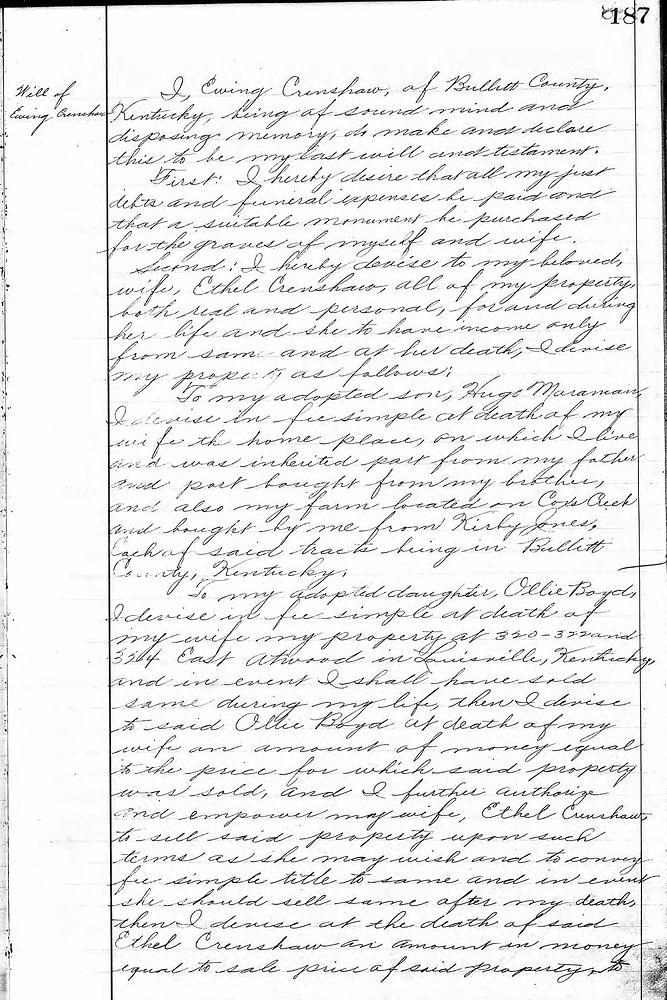 187
Will of
Ewing Crenshaw
I, Ewing Crenshaw, of Bullitt County,
Kentucky, being of sound mind and
disposing memory, do make and declare
this to be my last will and testament.
First: I hereby desire that all my just
debts and funeral expenses be paid and
that a suitable monument be purchased
for the graves of myself and wife.
Second: I hereby devise to my beloved,
wife, Ethel Crenshaw, all of my property,
both real and personal, for and during
her life and she to have income only
from same and at her death, I devise
my property as follows:
To my adopted son, Hugs Maraman,
I devise in fee simple at death of my
wife th home place, on which I live
and was inherited part from my father
and part bought from my brother,
and also my farm located on Coxs Creek
and bought by me from Kirby Jones,
Each of said tracts being in Bullitt
County, Kentucky.
To my adopted daughter, Ollie Boyd,
I devise in fee simple at death of
my wife my property at 320-322 and
324 East Atwood in Louisville, Kentucky,
and in event I shall have sold
same during my life, then I devise
to said Ollie Boyd at death of my
wife an amount of money equal
to the price for which said property
was sold, and I further authorize
and empower may wife, Ethel Crenshaw,
to sell said property upon such
terms as she may wish and to convey
fee simple title to same and in event
she should sell same after my death,
then I devise at the death of said
Ethel Crenshaw an amount in money
equal to sale price of said property, to